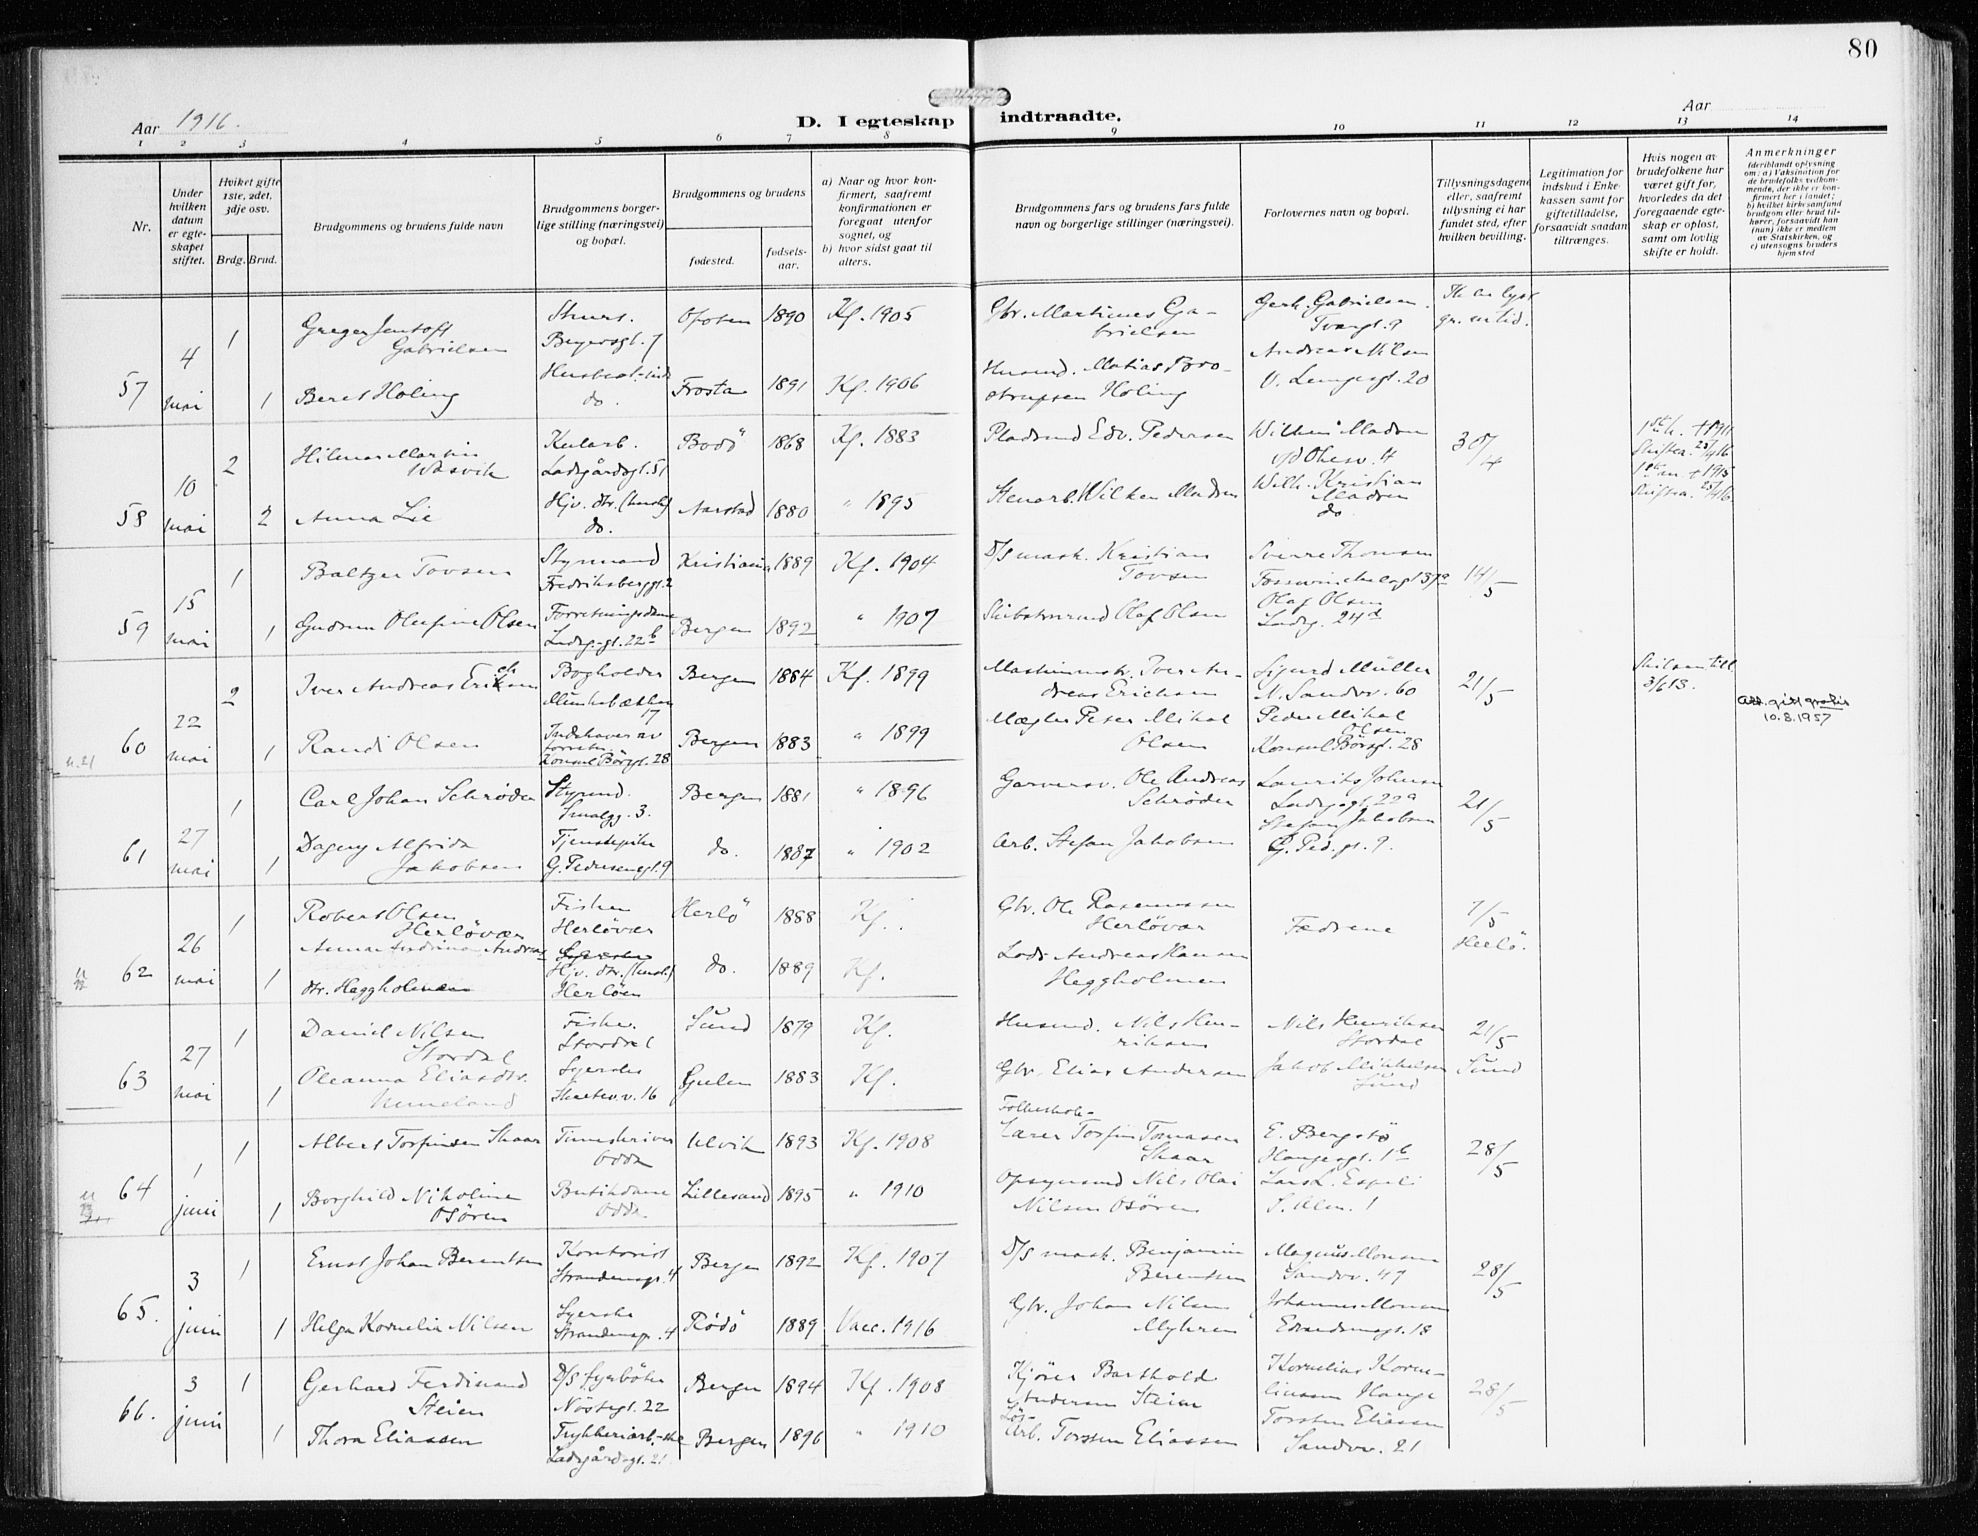 80
Aar 1916.
D. I egteskap indtraadte.
Aar
1 2 3 4 5 6 7 8 9 10 11 12 13 14
Nr.
Under hvilken datum er egteskapet stiftet.
Hviket gifte 1ste, 2det, 3dje osv.
Brdg. Brud.
Brudgommens og brudens fulde navn
Brudgommens borgerlige stilling (næringsvei) og bopæl.
Brudgommens og brudens
fødested.
fødselsaar.
a) Naar og hvor konfirmert, saafremt konfirmationen er foregaat utenfor sognet, og
b) hvor sidst gaat til alters.
Brudgommens fars og brudens fars fulde navn og borgerlige stillinger (næringsvei).
Forlovernes navn og bopæl.
Tillysningsdagene eller, saafremt tillysning ei har fundet sted, efter hvilken bevilling.
Legitimation for indskud i Enkekassen samt for giftetilladelse, forsaavidt saadan tiltrænges.
Hvis nogen av brudefolkene har været gift før, hvorledes da det foregaaende egteskap er opløst, samt om lovlig skifte er holdt.
Anmerkninger
(deriblandt oplysning om: a) Vaksination for de brudefolks vedkommende, der ikke er konfirmert her i landet; b) hvilket kirkesamfund brudgom eller brud tilhører, forsaavidt han (hun) ikke er medlem av Statskirken, og c) utensogns bruders hjemsted
57 4 mai
1 Greger Jentoft Gabrielsen Ofoten 1890 Kf. 1905 Gbr. Martines Gabrielsen Gerh. Gabrielsen
1 Beret Holing do. Frosta 1891 Kf. 1906 Husmd. Matias Holing Andreas Nilsen
58 10 mai
2 Hilmar Martin Ladegårdsgt. 51 Bodö 1868 Kf. 1883 Pladsmd Edv. Pedersen 30/4
2 Anna Lie Hjv. dtr. (hush.) do. Aarstad 1880 " 1895 Stenarb. Wilken Madsen Wilh. Kristian Madsen do
59 15 mai
1 Baltzer Tovsen Styrmand Fredriksberggt. 2 Kristiania 1889 Kf. 1904 D/S mask. Kristian Tovsen Sverre Thomsen 14/5
1 Gudrun Olufine Olsen Forretningsdame Ladeg.gt. 22b Bergen 1892 " 1907 Olaf Olsen Olaf Olsen Ladeg. 24d
60 22 mai
2 Iver Andreas Eriksen Bogholder Munkebækken 17 Bergen 1884 Kf. 1899 Maskinmstr. Iver Andreas Erichsen Sigurd Müller N. Sandvv. 60 21/5 3/6 13.
1 Randi Olsen Indehaver av forretn. Konsul Börsgt. 28 Bergen 1883 " 1899 Mægler Peter Mikal Olsen Peder Mikal Olsen Konsul Börsgt. 28
Att. gitt gratis
10.8.1957
u. 21
61 27 mai
1 Carl Johan Schrøder Styrmd. Smalgg. 3. Bergen 1881 " 1896 Garversv. Ole Andreas Schrøder Laurits Johnsen Ladeg.gt. 22a 21/5
1 Dagny Alfrida Jakobsen Tjenestepike G. Pedersensgt. 9 do. 1887 " 1902 Arb. Stefan Jakobsen Stefan Jakobsen G. Ped. gt. 9.
62 26 mai
1 Robert Olsen Herløvær Fisker Herløvær Herlö 1888 Kf. Gbr. Ole Rasmussen Herløvær Fædrene 7/5 Herlö.
1 Anna Andreasdtr. Heggholmen Hjv. dtr. (hush.) Herløen do. 1889 Kf. Lods Andreas Hansen Heggholmen
63 27 mai
1 Daniel Nilsen Stordal Fisker. Stordal Sund 1879 Kf. Husmd. Nils Henriksen Nils Henriksen Stordal 21/5 Sund
1 Oleanna Eliasdtr. Syerske 16 Gulen 1883 Kf. Gbr. Elias Andersen Jakob Mikkelsen Sund
64 1 juni
1 Albert Torfinsen Skaar Timeskriver Odda Ulvik 1893 Kf. 1908 Folkeskolelærer Torfin Tomasen Skaar E. Bergstö Haugesgt. 1b 28/5
1 Borghild Nikoline Osören Butikdame Odda. Lillesand 1895 " 1910 Opsynsmd Nils Olai Nilsen Osören Lars L. Espeli S. Alm. 1
65. 3 juni
1 Ernst Johan Berentsen Kontorist Strandensgt. 4 Bergen 1892 Kf. 1907 D/S mask. Benjamin Berentsen Magnus Monsen Sandvv. 47 28/5
1 Helga Kornelia Nilsen Syerske Strandensgt. 4 Rödö 1889 Vacc. 1916 Gbr. Johan Nilsen Myhren Johannes Monsen Edvardsensgt. 18
66. 3 juni
1 Gerhard Ferdinand Steien D/S fyrböter Nöstegt. 22 Bergen 1894 Kf. 1908 Kjörer Barthold Andersen Steien Kornelius Korneliussen Hauge 28/5
1 Thora Eliassen Trykkeriarb.ske Ladegårdsgt. 21 Bergen 1896 " 1910 Lösarb. Torsten Eliassen Torsten Eliassen Sandvv. 21